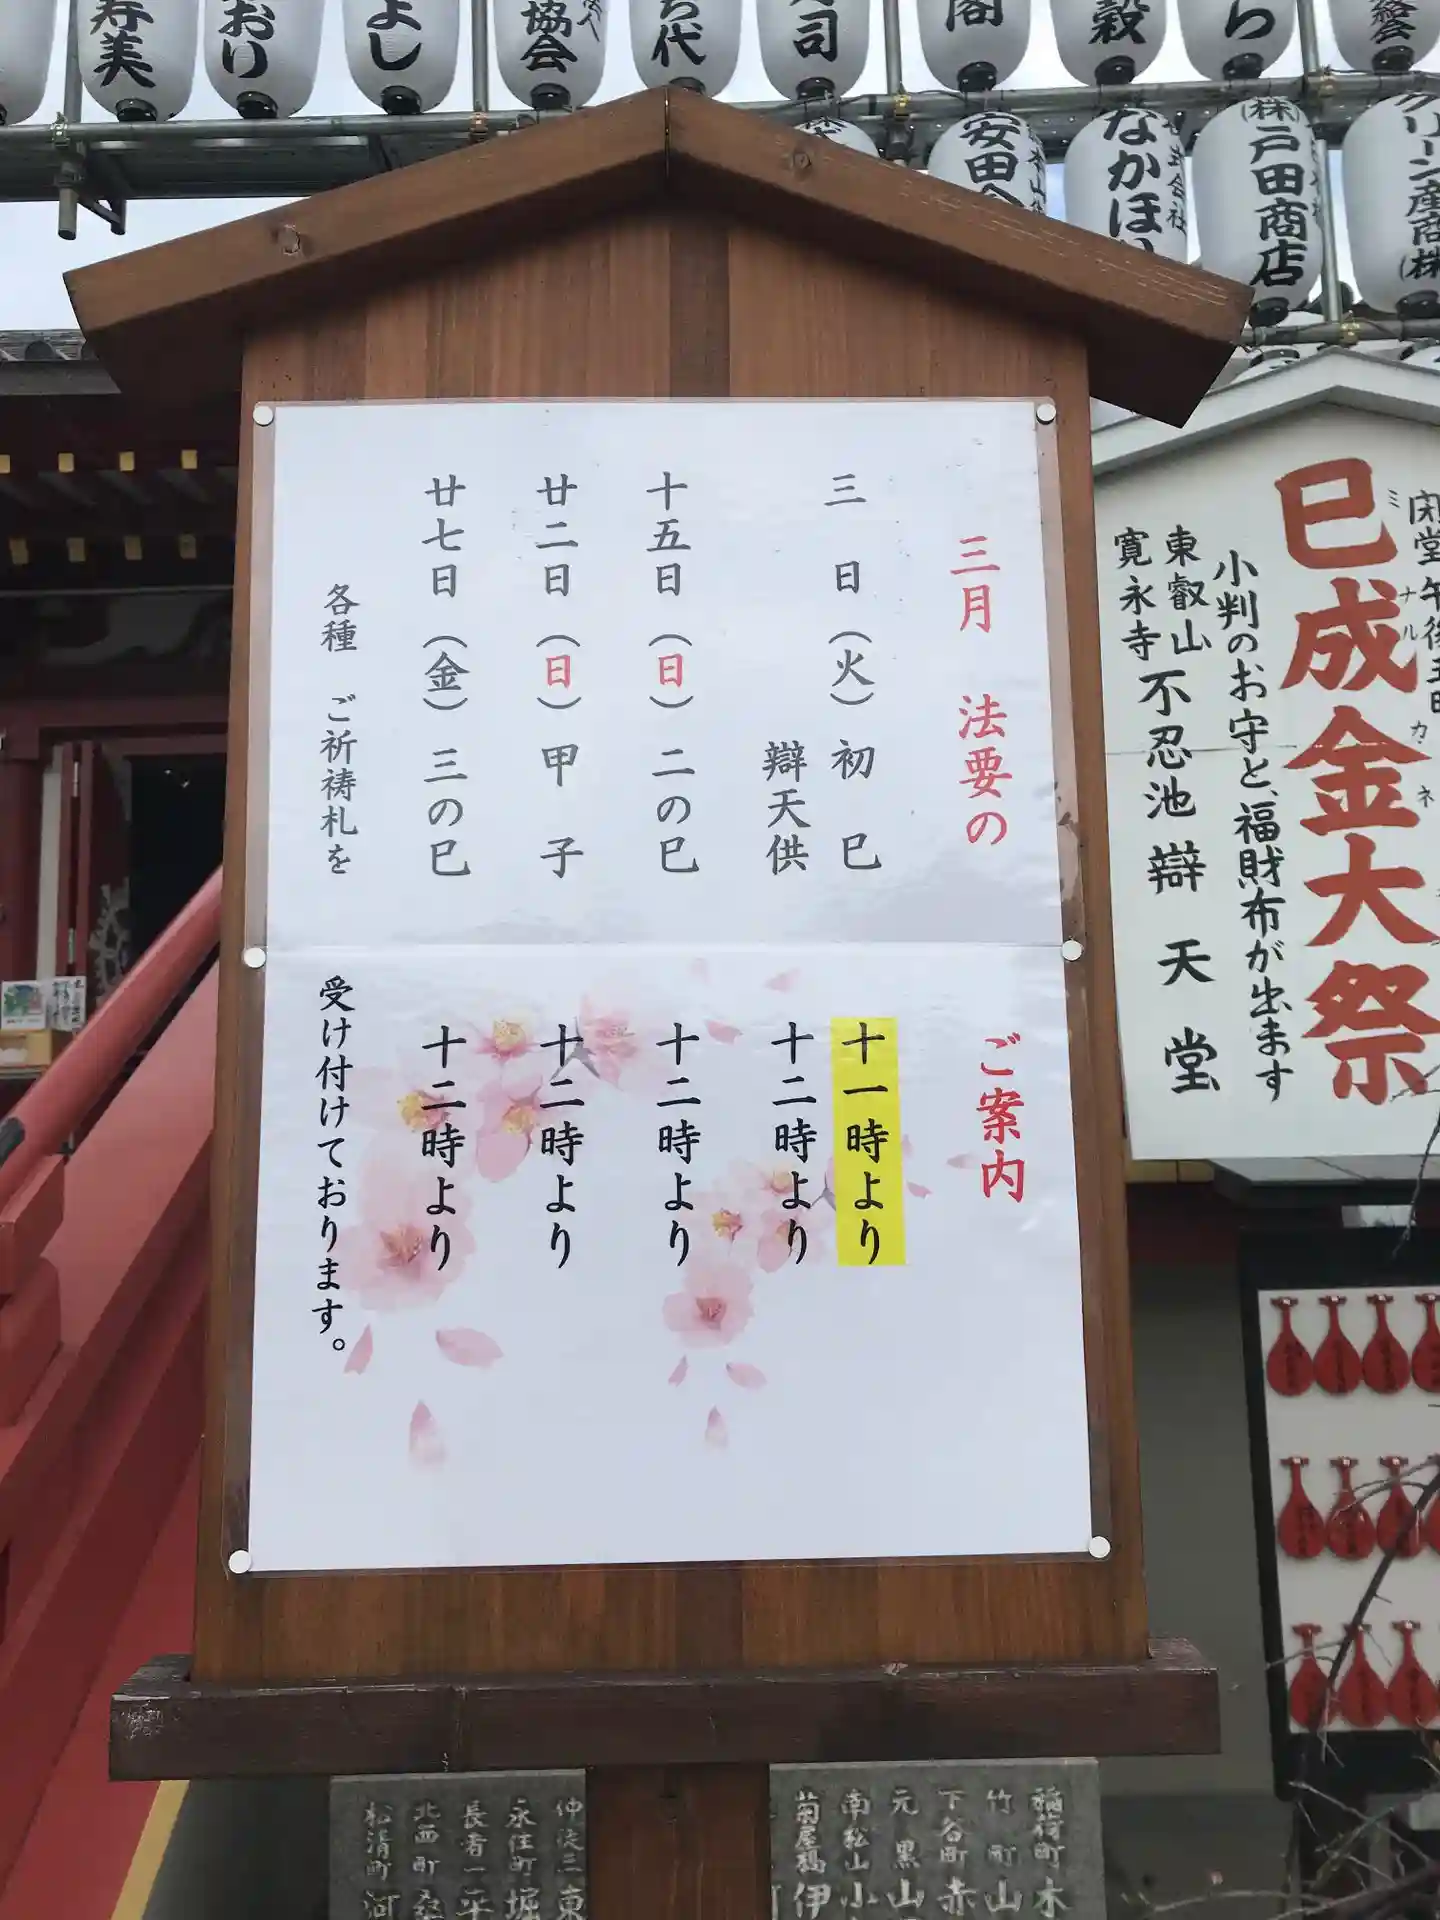 三月 法要の ご案内
三 日（火）初 巳 十一時より
辯天供 十二時より
十五日（日）二の巳 十二時より
廿二日（日）甲 子 十二時より
廿七日（金）三の巳 十二時より
各種 ご祈祷札を 受け付けております。
巳成金大祭
ミ ナル カネ
小判のお守と、福財布が出ます
東叡山
寛永寺
不忍池 辯 天 堂
寿美
おり
よし
協会
ち代
司
閣
穀
ら
安田
なかほ
(株)戸田商店
クリーン産商(株)
稲荷町 木
竹町 山
下谷町 赤
元黒 山
南松山 小
菊屋橋 伊
東
永住町 堀
長者一 平
北西町 桑
松清町 河